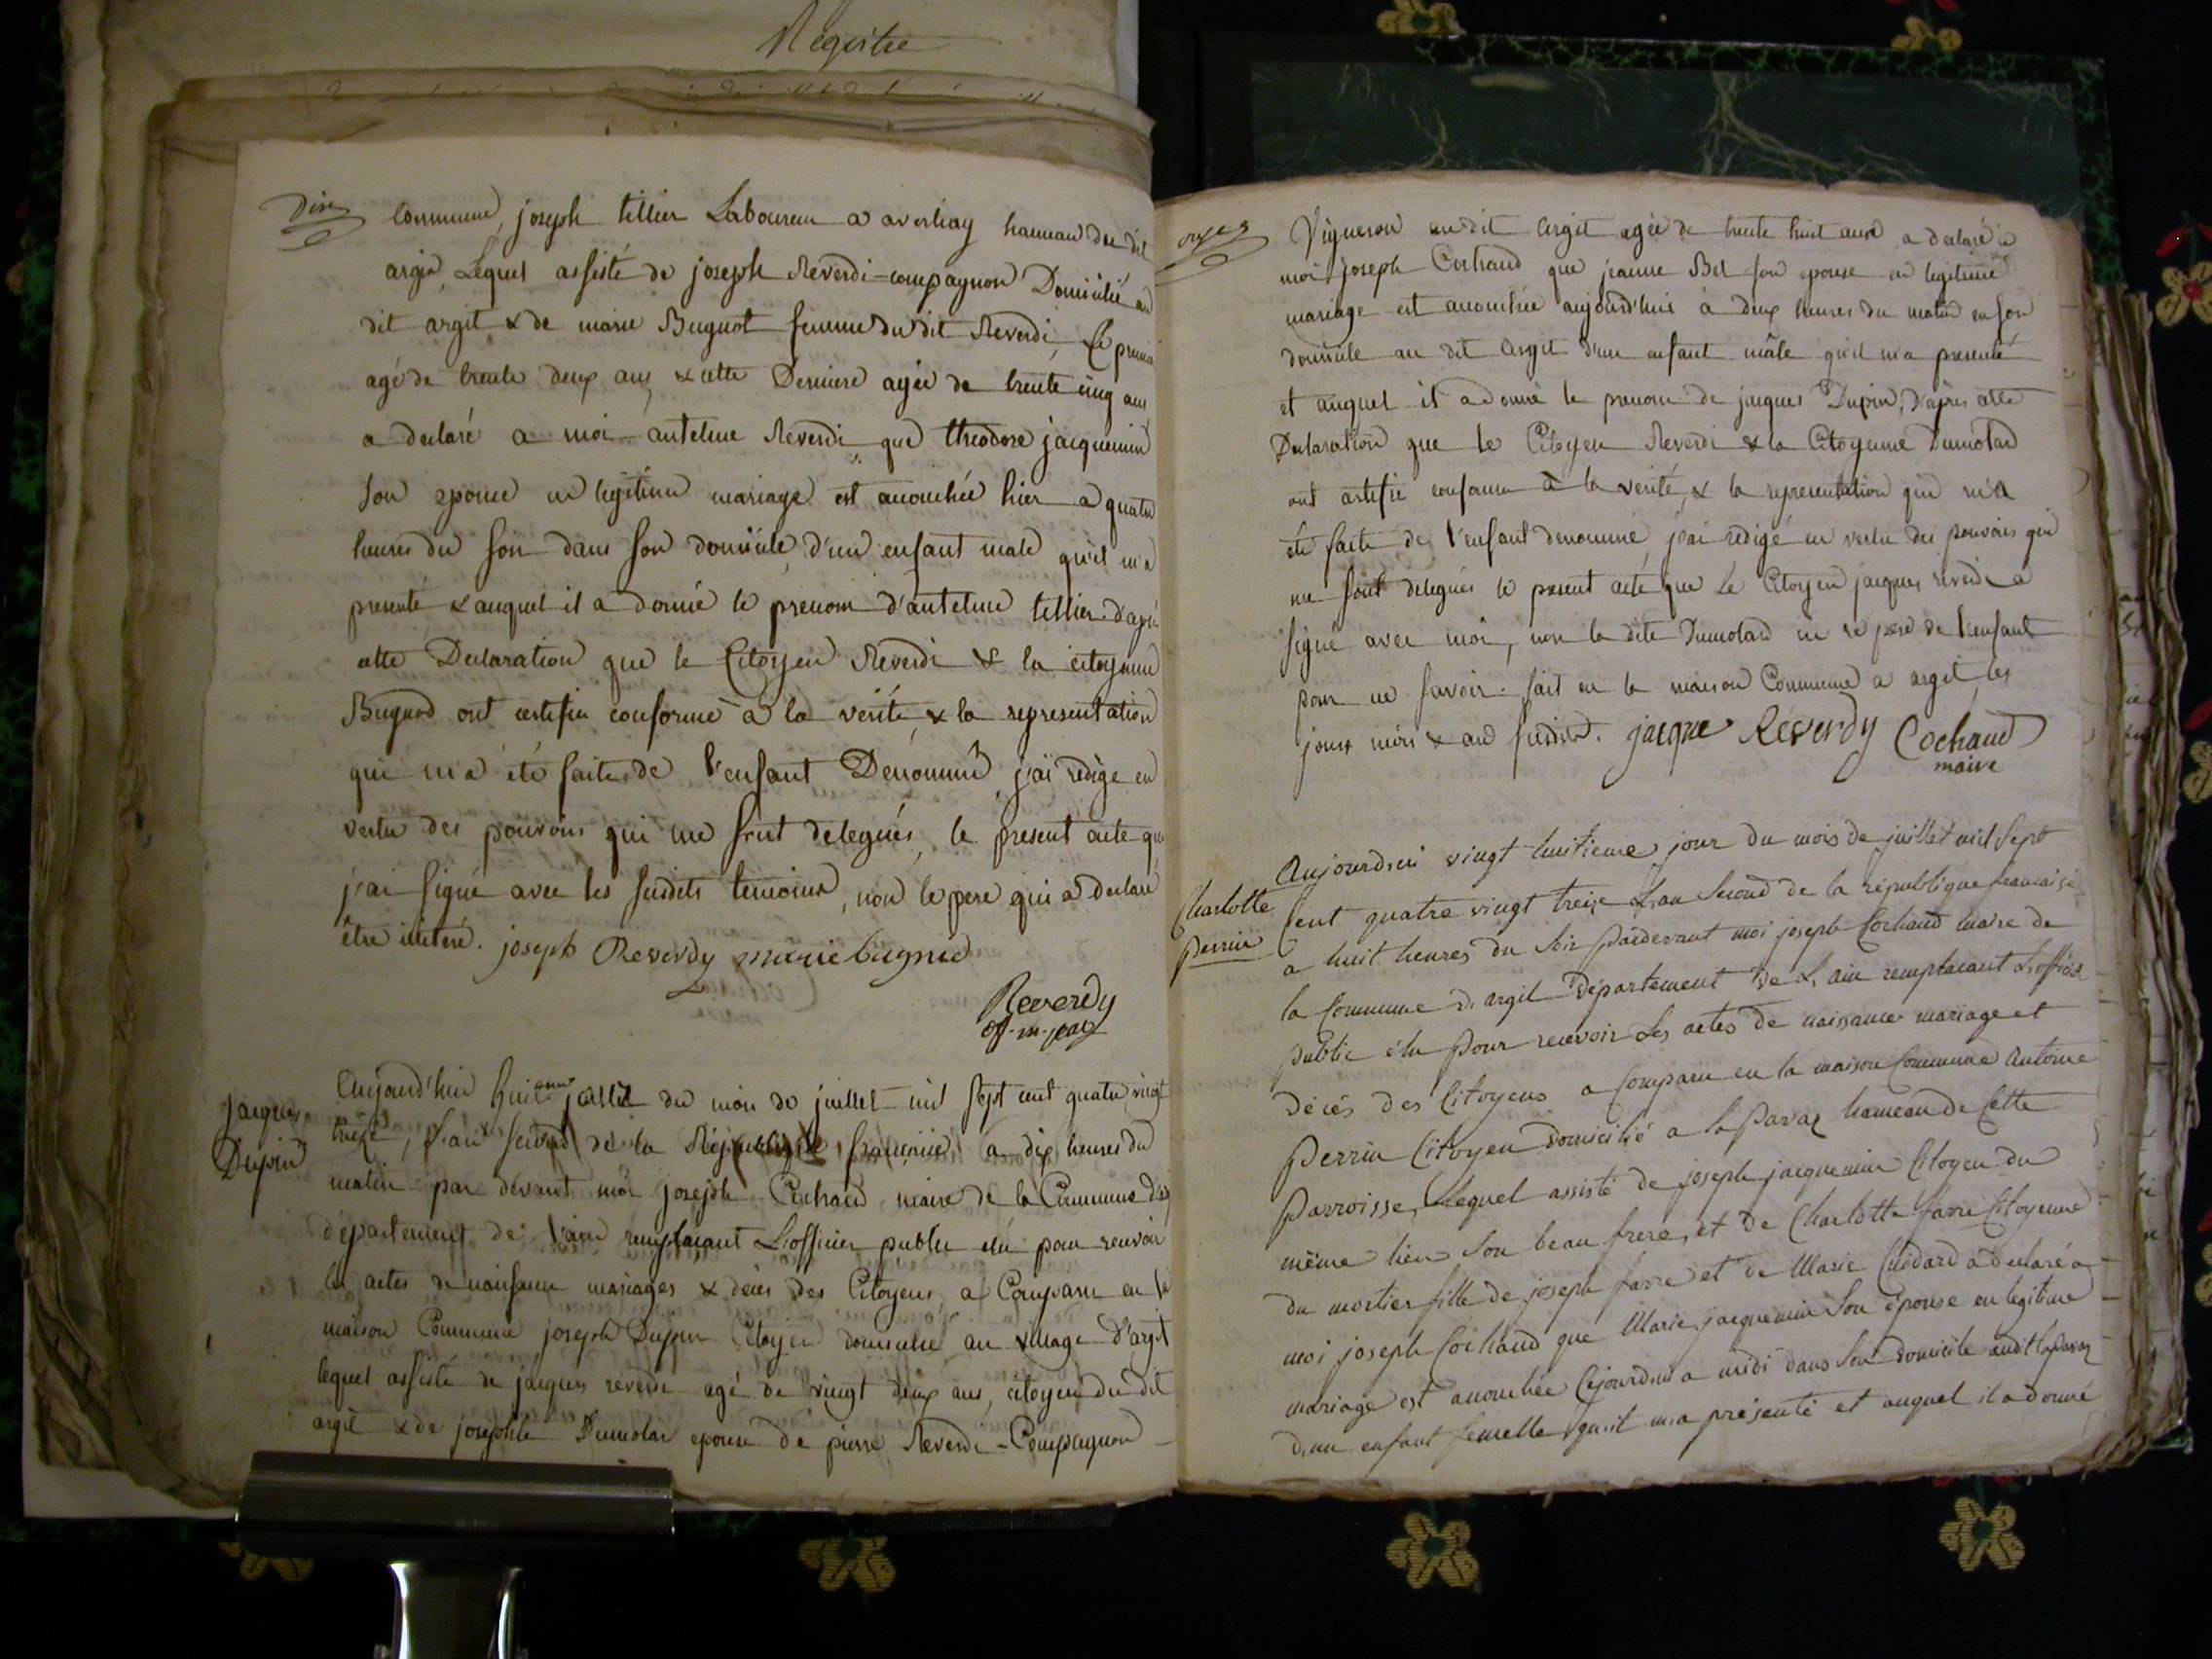 Registre
Dix
Commune, joseph tellier Laboureur a averliay hameau du dit
argis, Lequel assisté de joseph Reverdi-compagnon Domicilié au
dit argit & de marie Bugnot femme du dit Reverdi, Le premier
agé de trente deux ans & cette Derniere agée de trente cinq ans
a declaré a moi antelme Reverdi que theodore jacquemin
son epouse en legitime mariage est accouchée hier a quatre
heures du soir dans son domicile, d'un enfant male qu'il m'a
presenté & auquel il a donné le prenom d'antelme tellier. d'après
cette Declaration que le Citoyen Reverdi & la citoyenne
Bugnod ont certifiée conforme à la verité, & la representation
qui m'a été faite de l'enfant Dénommé, j'ai redigé en
vertu des pouvoirs qui me sont delegués, le present acte que
j'ai signé avec les susdits temoins, non le pere qui a declaré
être illiteré. joseph Reverdy marie bugnid
Reverdy
Jacques
Dupin
Aujourd'hui huit du mois de juillet mil sept cent quatre vingt
treize, L'an second de la République françoise a dix heures du
matin par devant moi joseph Cochaud maire de la Commune
département de l'ain remplaçant L'officier public élu pour recevoir
les actes de naissance mariages & décès des Citoyens, a Comparu en la
maison Commune joseph Dupin Citoyen domicilié au village d'argit
lequel assisté de jacques reverdi agé de vingt deux ans, citoyen du dit
argit & de josephte Dumolar epouse de pierre Reverdi-Compagnon
onze
Vigneron au dit Argit agée de trente huit ans, a declaré a
moi joseph Cochaud que jeanne Bel son epouse en legitime
mariage est accouchée aujourd'hui à deux heures du matin en son
domicile au dit Argit d'un enfant mâle qu'il m'a presenté
et auquel il a donné le prenom de jacques Dupin, d'après cette
Declaration que le Citoyen Reverdi & la Citoyenne Dumolard
ont certifié conforme à la verité, & la representation qui m'a
été faite de l'enfant denommé, j'ai redigé en vertu des pouvoirs qui
me sont delegués le present acte que Le Citoyen jacques reverdi a
signé avec moi, non la dite Dumolard ni le pere de l'enfant
pour ne savoir. fait en la maison Commune a argit, les
jour mois & an susdits. jacque Reverdy Cochaud
maire
Charlotte
perrin
Aujourdhui vingt-huitieme jour du mois de juillet mil sept
cent quatre vingt treize L'an second de la république francaise
a huit heures du soir pardevant moi joseph Cochaud maire de
la Commune d'argil département de L'ain remplacant L'officier
public élu pour recevoir Les actes de naissance mariage et
décès des Citoyens a Comparu en la maison Commune Antoine
perrin Citoyen domicilié a la pavaz hameau de Cette
parroisse, Lequel assisté de joseph jacquemin Citoyen du
même lieu son beau frere, et de Charlotte favre Citoyenne
du mortier fille de joseph favre et de Marie Chidard a declaré a
moi joseph Cochaud que Marie jacquemin son épouse en legitime
mariage est accouchée Cejourdhui a midi dans son domicile audit lapavaz
d'un enfant femelle qu'il m'a présenté et auquel il a donné